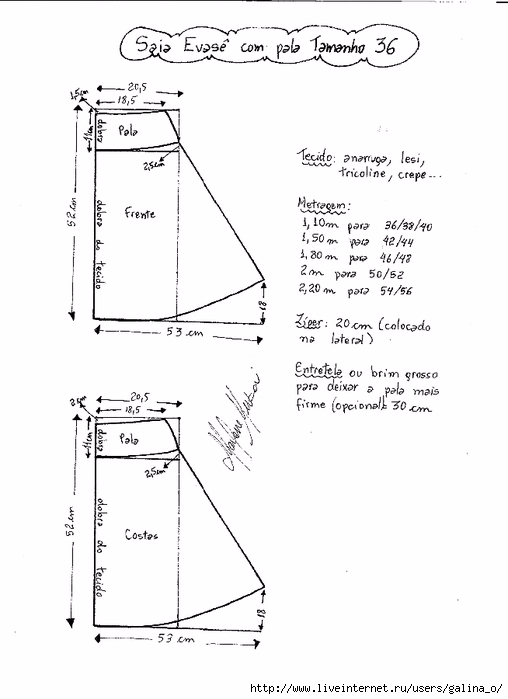 Saia Evasê com pala Tamanho 36
20,5
18,5
1,5cm
11cm
dobra
Pala
2,5cm
52 cm
dobra do tecido
Frente
18
53 cm
Tecido: anarruga, lesi,
tricoline, crepe...
Metragem:
1,10m para 36/38/40
1,50 m para 42/44
1,80 m para 46/48
2 m para 50/52
2,20 m para 54/56
Zíper: 20 cm (colocado
na lateral)
Entretela ou brim grosso
para deixar a pala mais
firme (opcional): 30 cm
20,5
18,5
11cm
dobra
Pala
2,5cm
52 cm
dobra do tecido
Costas
18
53 cm
http://www.liveinternet.ru/users/galina_o/